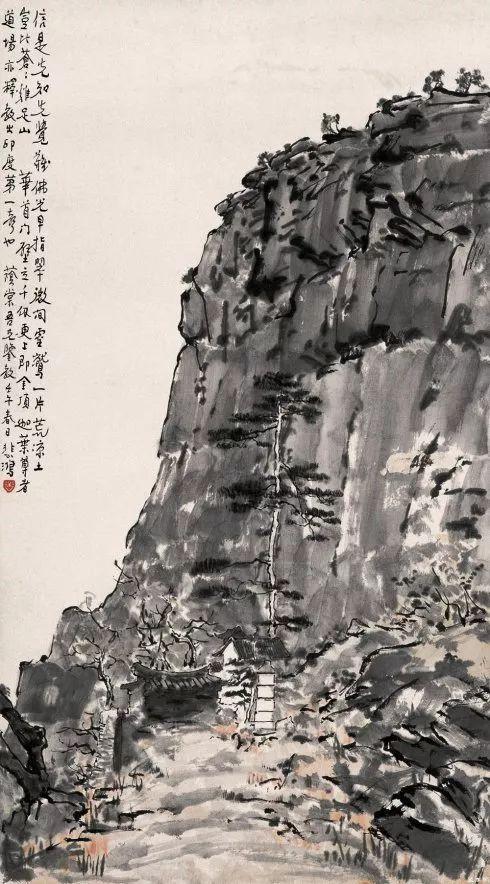 信是先知先覺難佛光早指翠微間靈鷲一片荒凉土
豈比蒼〻雞足山 華首門壁立千仞更上即金頂迦葉尊者
道場亦釋教出印度第一奇也 蔭棠吾兄鑒教 壬午春日 悲鴻